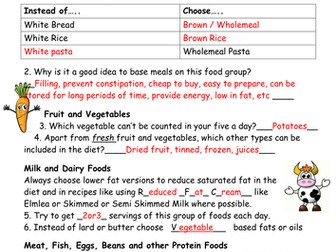 Instead of..... Choose.....
White Bread Brown / Wholemeal
White Rice Brown Rice
White pasta Wholemeal Pasta
2. Why is it a good idea to base meals on this food group?
_Filling, prevent constipation, cheap to buy, easy to prepare, can be
tored for long periods of time, provide energy, low in fat, etc ____
Fruit and Vegetables
3. Which vegetable can't be counted in your five a day?___Potatoes___
4. Apart from fresh fruit and vegetables, which other types can be
included in the diet?____Dried fruit, tinned, frozen, juices____
Milk and Dairy Foods
Always choose lower fat versions to reduce saturated fat in the
diet and in recipes like using R_educed _F_at_ C_ream__ like
Elmlea or Skimmed or Semi Skimmed Milk where possible.
5. Try to get _2or3_ servings of this group of foods each day.
6. Instead of lard or butter choose V_egetable___ based fats or oils
Meat, Fish, Eggs, Beans and other Protein Foods